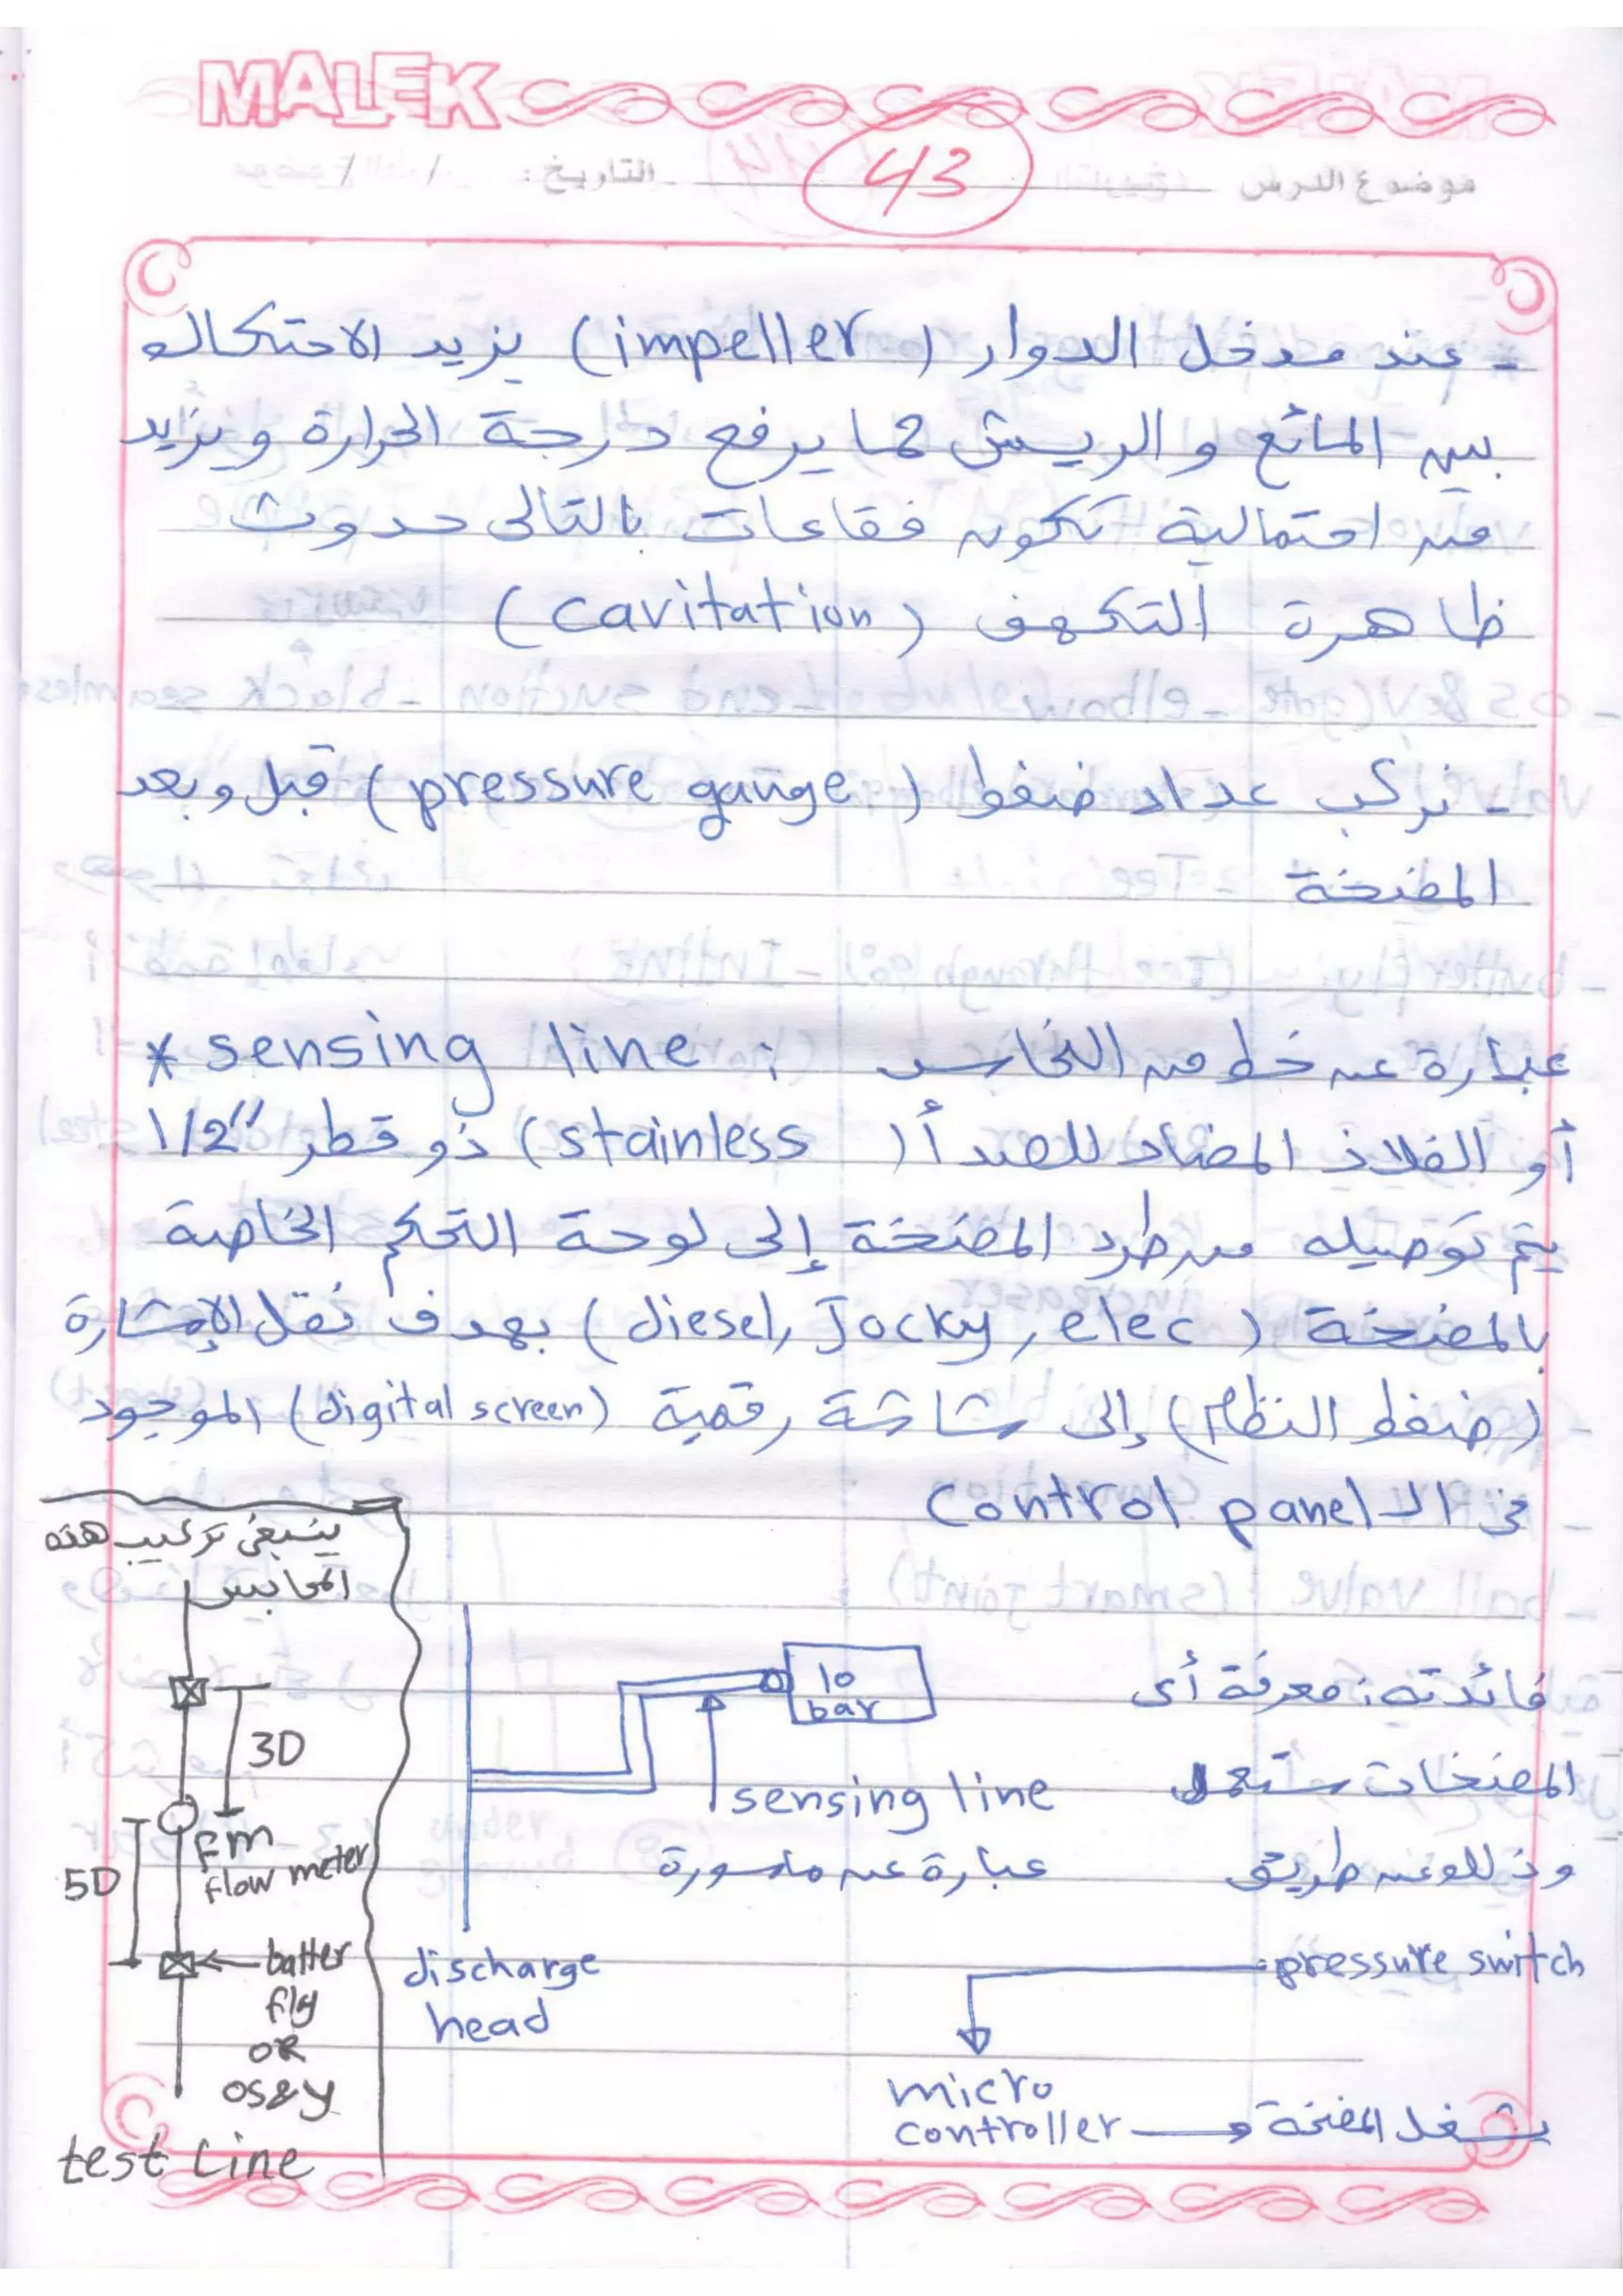 MALEK
موضوع الدرس
43
التاريخ: / /
- عند مدخل الدوار (impeller) يزيد الاحتكاك
بين المائع والريش مما يرفع درجة الحرارة ويزيد
من احتمالية تكون فقاعات بالتالى حدوث
ظاهرة التكهف (cavitation)
- نركب عداد ضغط (pressure gauge) قبل وبعد
المضخة
* sensing line : عبارة عن خط من النحاس
أو الفلاذ المضاد للصدأ (stainless) ذو قطر 1/2"
يتم توصيله من طرد المضخة إلى لوحة التحكم الخاصة
بالمضخة (diesel, Jocky, elec) بهدف نقل الإشارة
(ضغط النظام) إلى شاشة رقمية (digital screen) الموجود
فى الـ control panel
فائدته: معرفة أى
المضخات ستعمل
وذلك عن طريق
pressure switch
micro
controller
يشغل المضخة
10
bar
sensing line
عبارة عن ماسورة
discharge
head
ينبغى تركيب هذه
المحابس
3D
FM
flow meter
5D
batter
fly
OR
OS&Y
test Line